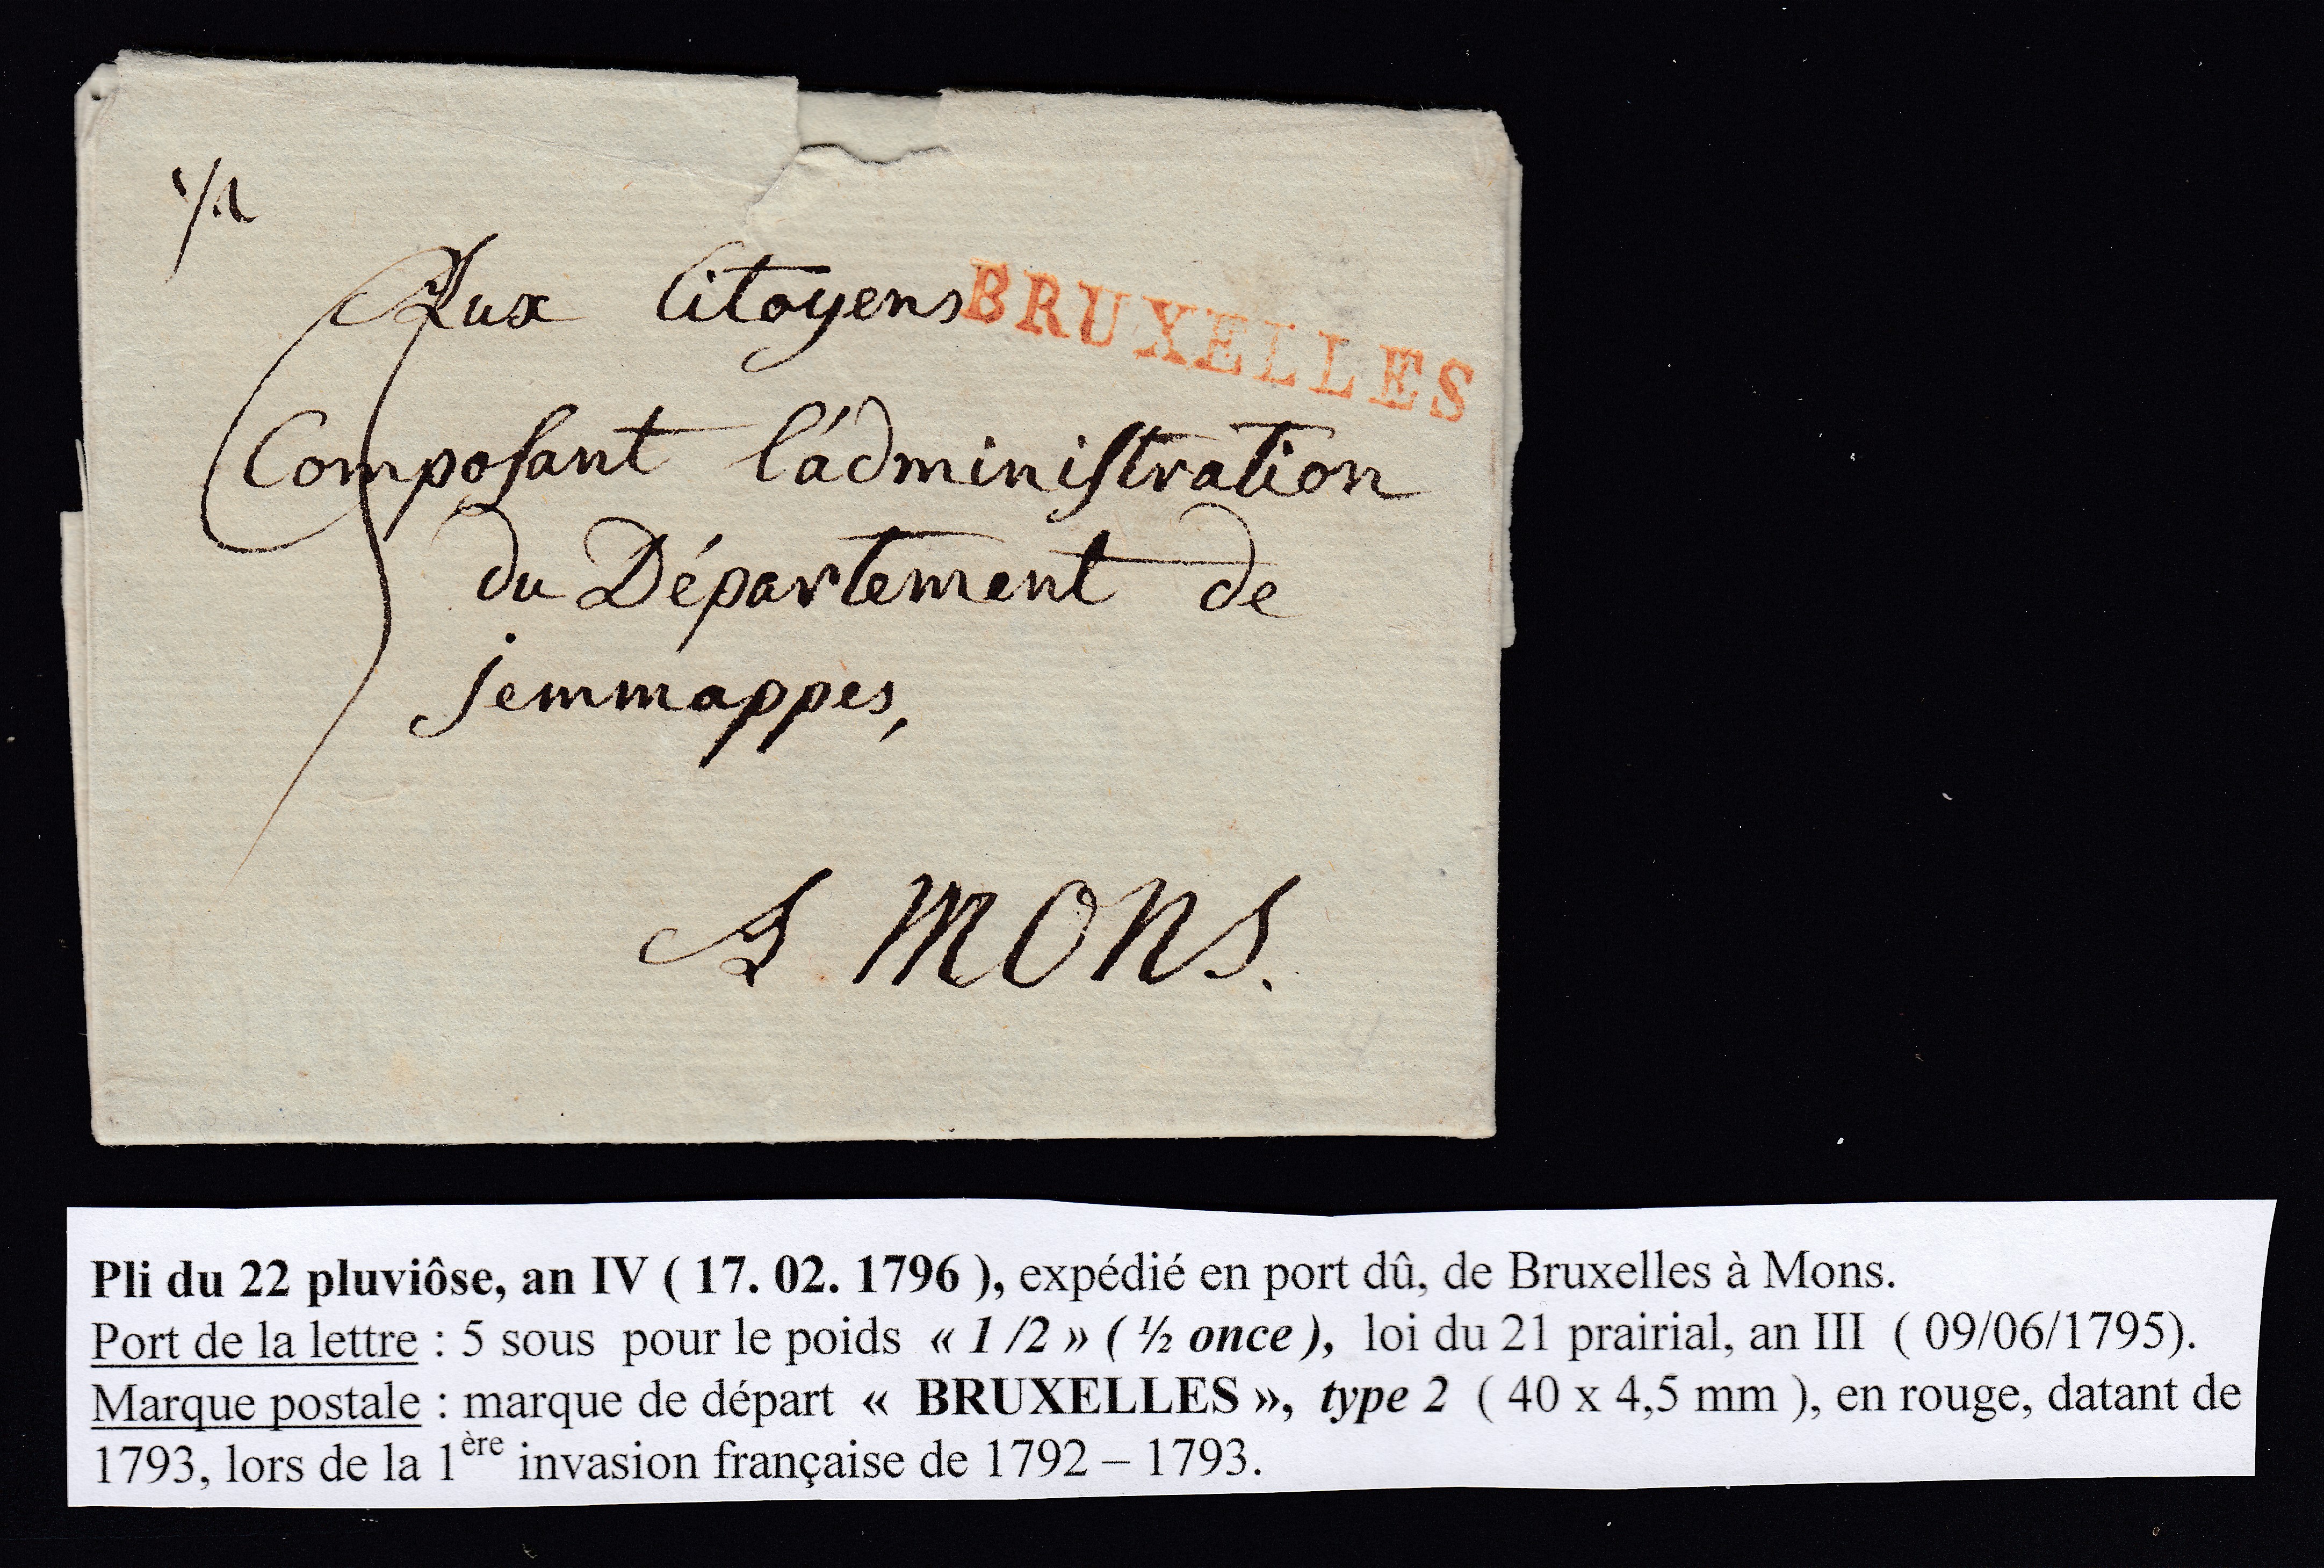 1/2
Aux Citoyens BRUXELLES
Composant l'administration
du Département de
jemmappes,
5
A MONS.
Pli du 22 pluviôse, an IV ( 17. 02. 1796 ), expédié en port dû, de Bruxelles à Mons.
Port de la lettre : 5 sous pour le poids « 1 /2 » ( ½ once ), loi du 21 prairial, an III ( 09/06/1795).
Marque postale : marque de départ « BRUXELLES », type 2 ( 40 x 4,5 mm ), en rouge, datant de
1793, lors de la 1ère invasion française de 1792 – 1793.